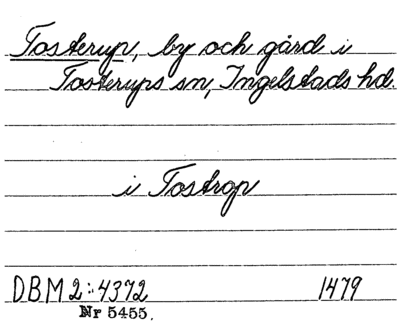 Tosterup, by och gård i
Tosterups sn, Ingelstads hd.
i Tostrop
DBM 2:4372 1479
Nr 5455.